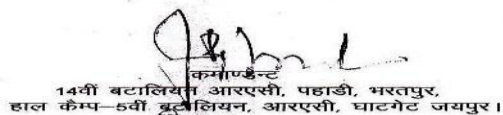 कमाण्डेन्ट
14वीं बटालियन आरएसी, पहाडी, भरतपुर,
हाल कैम्प–5वीं बटालियन, आरएसी, घाटगेट जयपुर।